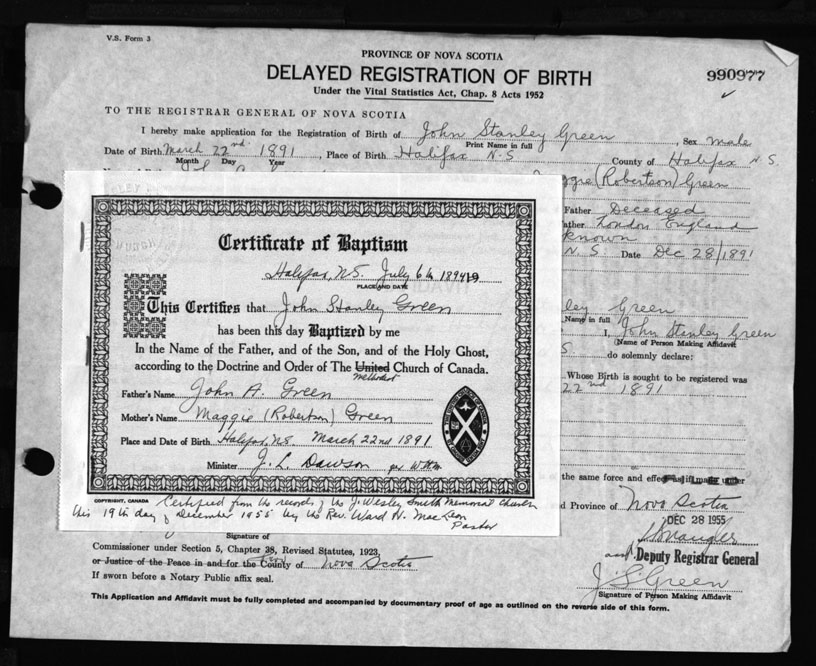 V.S. Form 3
PROVINCE OF NOVA SCOTIA
DELAYED REGISTRATION OF BIRTH
990977
Under the Vital Statistics Act, Chap. 8 Acts 1952
TO THE REGISTRAR GENERAL OF NOVA SCOTIA
I hereby make application for the Registration of Birth of John Stanley Green, Sex male
Print Name in full
Date of Birth March 22nd 1891, Place of Birth Halifax N.S County of Halifax N.S.
Month Day Year
Maggie (Robertson) Green
Father Deceased
ather London England
known
N.S. Date Dec 28/1891
Certificate of Baptism
Halifax, N.S. July 6th 1894 19
PLACE AND DATE
This Certifies that John Stanley Green
has been this day Baptized by me
In the Name of the Father, and of the Son, and of the Holy Ghost,
according to the Doctrine and Order of The United Church of Canada.
Methodist
Father's Name John A. Green
Mother's Name Maggie (Robertson) Green
Place and Date of Birth Halifax, N.S. March 22nd 1891
Minister J. L. Dawson per W.N.M.
COPYRIGHT, CANADA
Certified from the records of the J. Wesley Smith Memorial Church
this 19th day of December 1955 by the Rev. Ward N. MacLean
Pastor
ley Green
Name in full
I, John Stanley Green
(Name of Person Making Affidavit
S do solemnly declare:
Whose Birth is sought to be registered was
22nd 1891
the same force and effect as if made under
d Province of Nova Scotia
DEC 28 1955
Signature of
Commissioner under Section 5, Chapter 38, Revised Statutes, 1923
and Deputy Registrar General
or Justice of the Peace in and for the County of Nova Scotia
If sworn before a Notary Public affix seal.
J. S. Green
Signature of Person Making Affidavit
This Application and Affidavit must be fully completed and accompanied by documentary proof of age as outlined on the reverse side of this form.